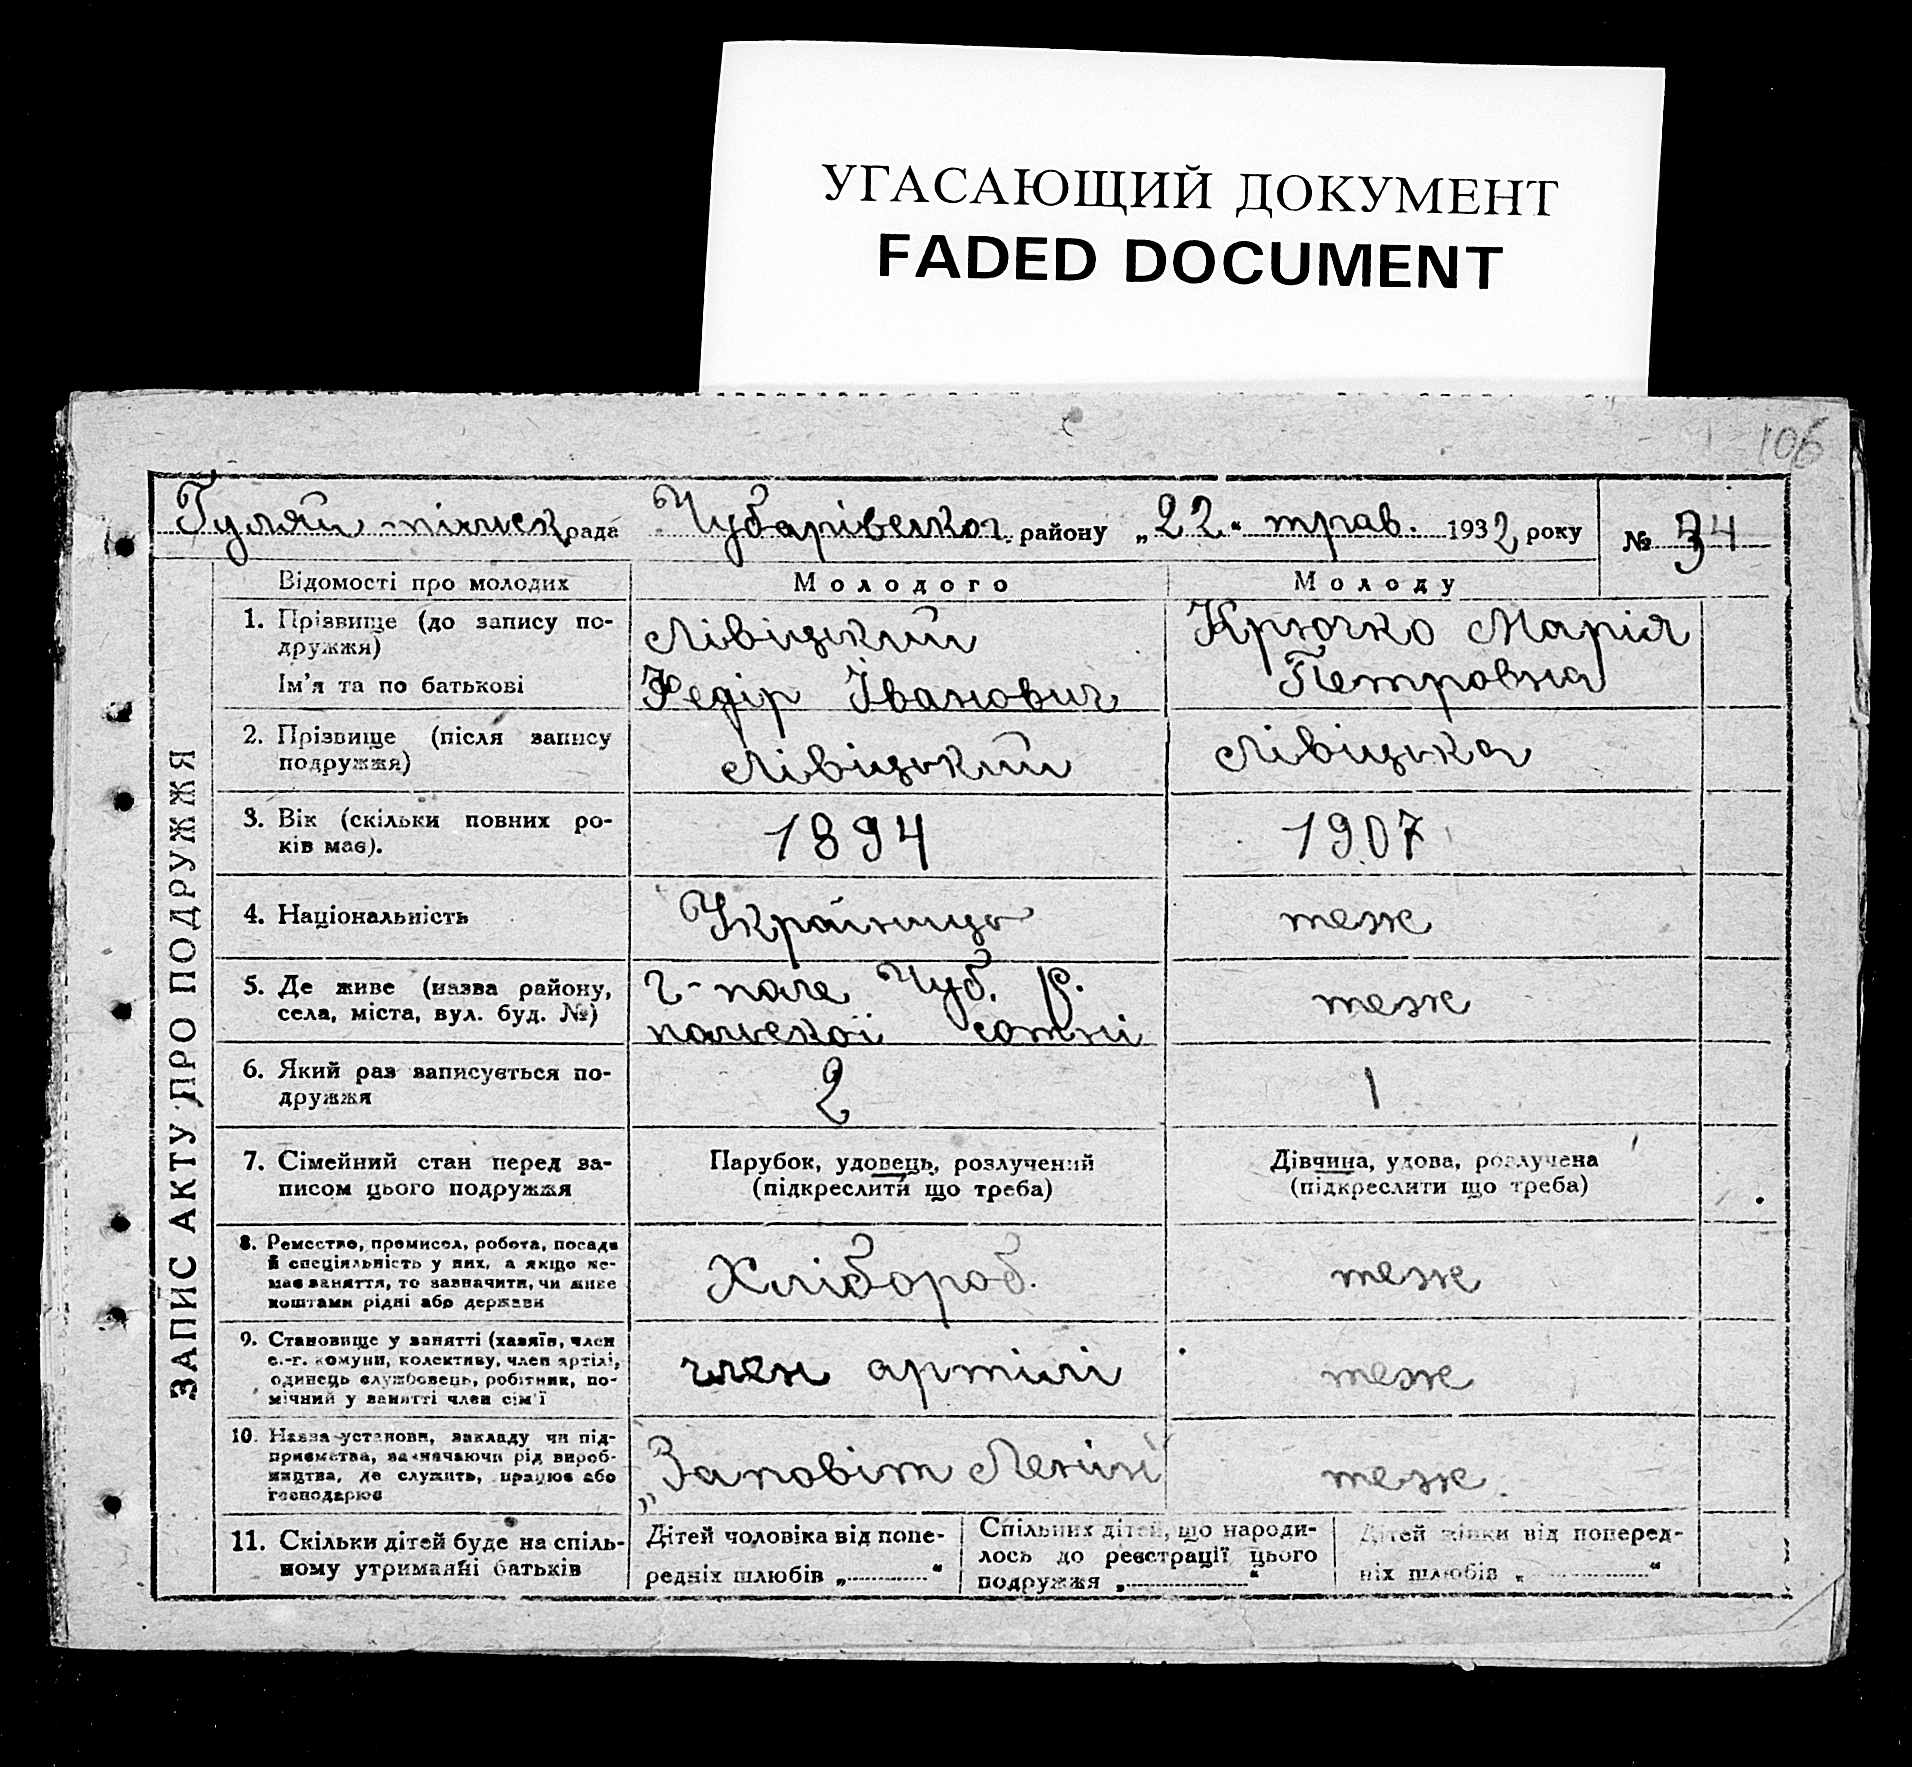 УГАСАЮЩИЙ ДОКУМЕНТ
FADED DOCUMENT
106
Гуляй-пільск рада Чубарівськог. району „22“ трав. 1932 року № 34
ЗАПИС АКТУ ПРО ПОДРУЖЖЯ
Відомості про молодих Молодого Молоду
1. Прізвище (до запису по-
дружжя)
Ім'я та по батькові
Лівіцький
Федір Іванович
Крючко Марія
Петровна
2. Прізвище (після запису
подружжя)
Лівіцький
Лівіцька
3. Вік (скільки повних ро-
ків має).
1894
1907
4. Національність
Українць
теж
5. Де живе (назва району,
села, міста, вул. буд. №)
г-поле Чуб. р.
польської сотні
теж
6. Який раз записується по-
дружжя
2
1
7. Сімейний стан перед за-
писом цього подружжя
Парубок, удовець, розлучений
(підкреслити що треба)
Дівчина, удова, розлучена
(підкреслити що треба)
8. Ремество, промисел, робота, посада
й спеціяльність у них, а якщо не-
має заняття, то зазначити, чи живе
коштами рідні або держави
Хлібороб.
теж
9. Становище у занятті (хазяїн, член
с.-г. комуни, колективу, член артілі,
одинець службовець, робітник, по-
мічний у занятті член сім'ї
член артілі
теж
10. Назва установи, закладу чи під-
приємства, зазначаючи рід вироб-
ництва, де служить, працює або
господарює
„Заповіт Леніні
теж.
11. Скільки дітей буде на спіль-
ному утриманні батьків
Дітей чоловіка від попе-
редніх шлюбів „ “
Спільних дітей, що народи-
лось до реєстрації цього
подружжя „ “
Дітей жінки від поперед-
ніх шлюбів „ “